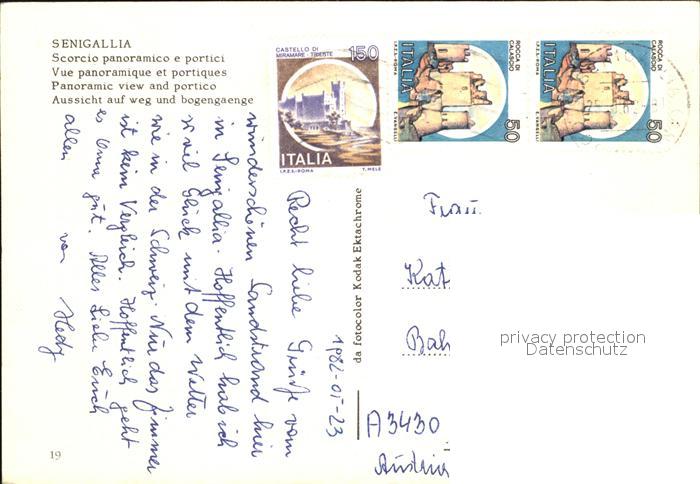 SENIGALLIA
Scorcio panoramico e portici
Vue panoramique et portiques
Panoramic view and portico
Aussicht auf weg und bogengaenge
CASTELLO DI
MIRAMARE - TRIESTE
150
ITALIA
I.P.Z.S.-ROMA
T. MELE
ROCCA DI
CALASCIO
ITALIA
50
I.P.Z.S.-ROMA
E. VANGELLI
ROCCA DI
CALASCIO
ITALIA
50
I.P.Z.S.-ROMA
E. VANGELLI
1982-05-23
Recht liebe Grüße vom
wunderschönen Sandstrand hier
in Senigallia. Hoffentlich hab ich
so viel Glück mit dem Wetter
wie in der Schweiz. Nur das Zimmer
ist kein Vergleich. Hoffentlich geht
es Oma gut. Alles Liebe Euch
allen von Hedy
da fotocolor Kodak Ektachrome
Frau
Kat
Bah
A 3430
Austria
19
privacy protection
Datenschutz